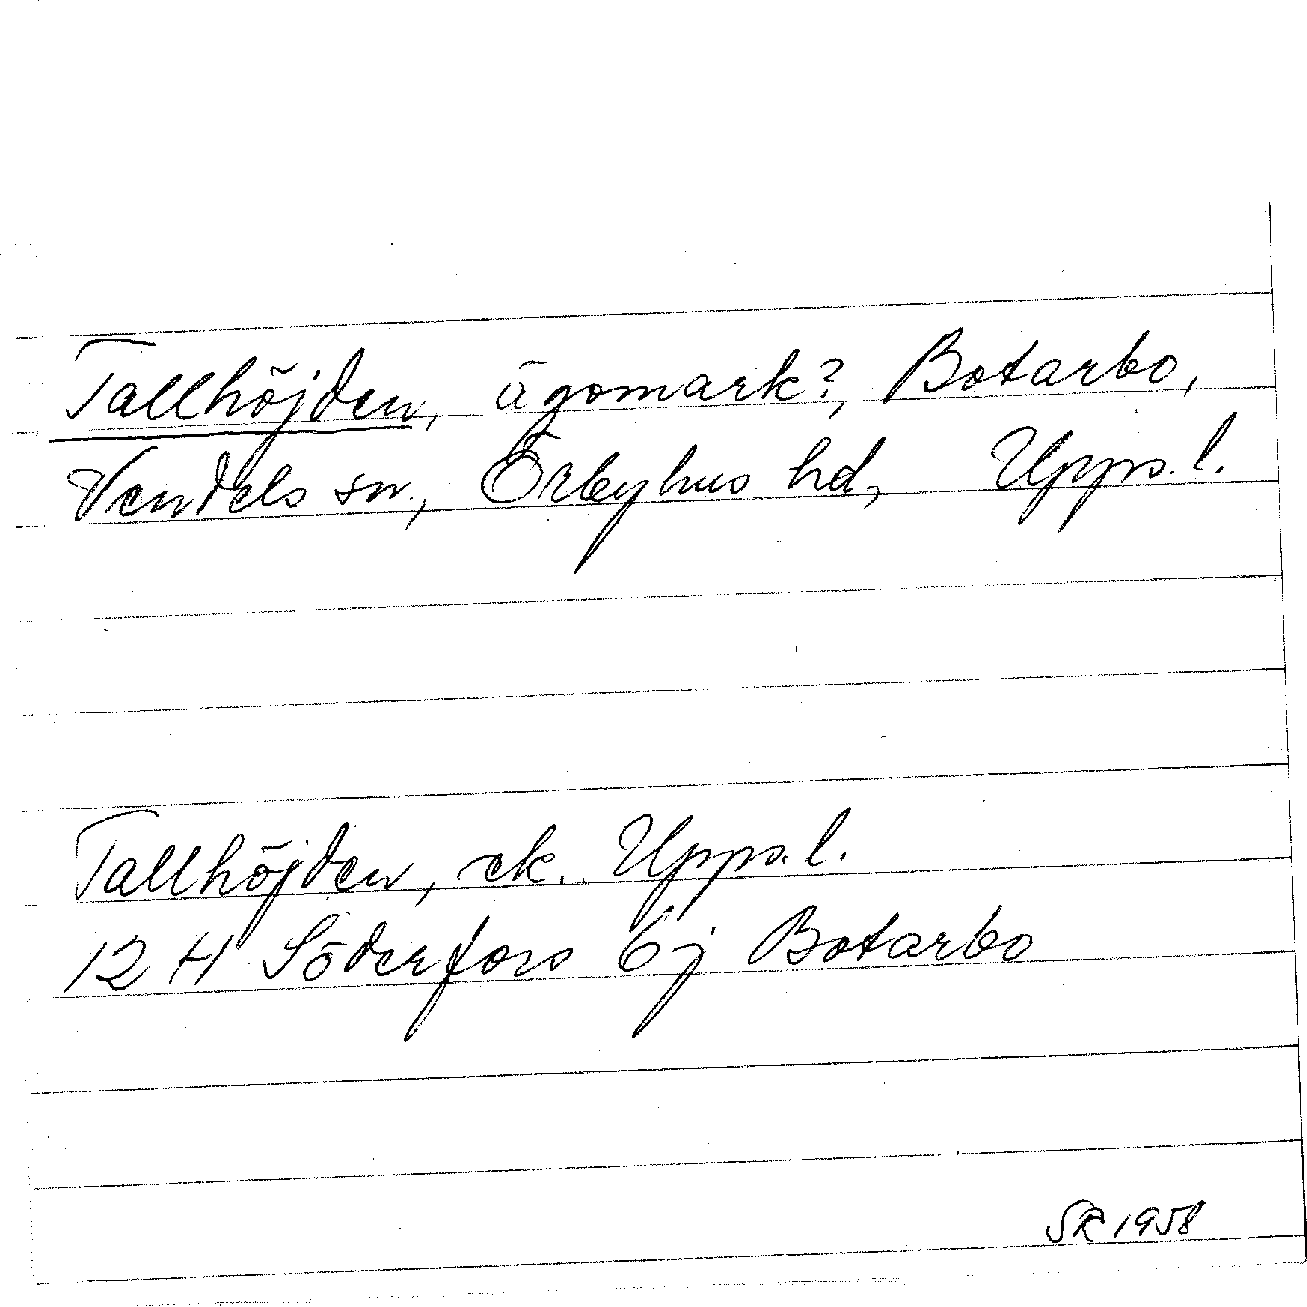 Tallhöjden, ägomark?, Botarbo,
Vendels sn., Örbyhus hd, Upps. l.
Tallhöjden, ek. Upps. l.
12 H Söderfors 6j Botarbo
SR 1958